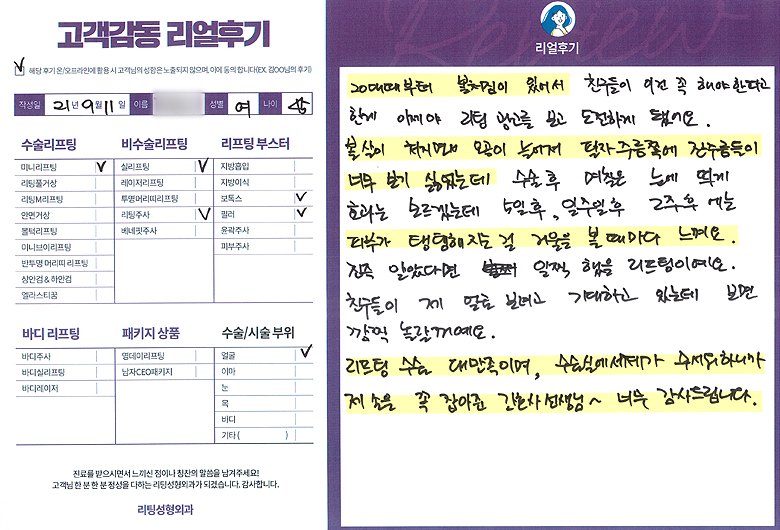 고객감동 리얼후기
해당 후기 온/오프라인에 활용 시 고객님의 성함은 노출되지 않으며, 이에 동의 합니다(EX. 김OO님의 후기)
작성일 21년 9월 11일 이름 성별 여 나이
수술리프팅
미니리프팅
리팅풀거상
리팅M리프팅
안면거상
볼턱리프팅
미니브이리프팅
반투명 머리띠 리프팅
상안검 & 하안검
엘라스티꿈
비수술리프팅
실리프팅
레이저리프팅
투명머리띠리프팅
리팅주사
베네핏주사
리프팅 부스터
지방흡입
지방이식
보톡스
필러
윤곽주사
피부주사
바디 리프팅
바디주사
바디실리프팅
바디레이저
패키지 상품
영데이리프팅
남자CEO패키지
수술/시술 부위
얼굴
이마
눈
목
바디
기타 ( )
진료를 받으시면서 느끼신 점이나 칭찬의 말씀을 남겨주세요!
고객님 한 분 한 분 정성을 다하는 리팅성형외과가 되겠습니다. 감사합니다.
리팅성형외과
Review
리얼후기
20대때부터 볼처짐이 있어서 친구들이 이건 꼭 해야한다고
한게 이제야 리팅 광고를 보고 도전하게 됐어요.
볼살이 쳐지면서 모공이 늘어져 팔자주름쪽에 잔주름들이
너무 보기 싫었는데 수술 후 며칠은 눈에 띄게
효과는 모르겠는데 5일후, 일주일후 2주후 에는
피부가 탱탱해지는 걸 거울을 볼 때마다 느껴요.
진즉 알았다면 일찍 했을 리프팅이예요.
친구들이 제 얼굴 보려고 기대하고 있는데 보면
깜짝 놀랄거예요.
리프팅 수술 대만족이며, 수술실에서 제가 무서워하니까
제 손을 꼭 잡아준 간호사 선생님~ 너무 감사드립니다.